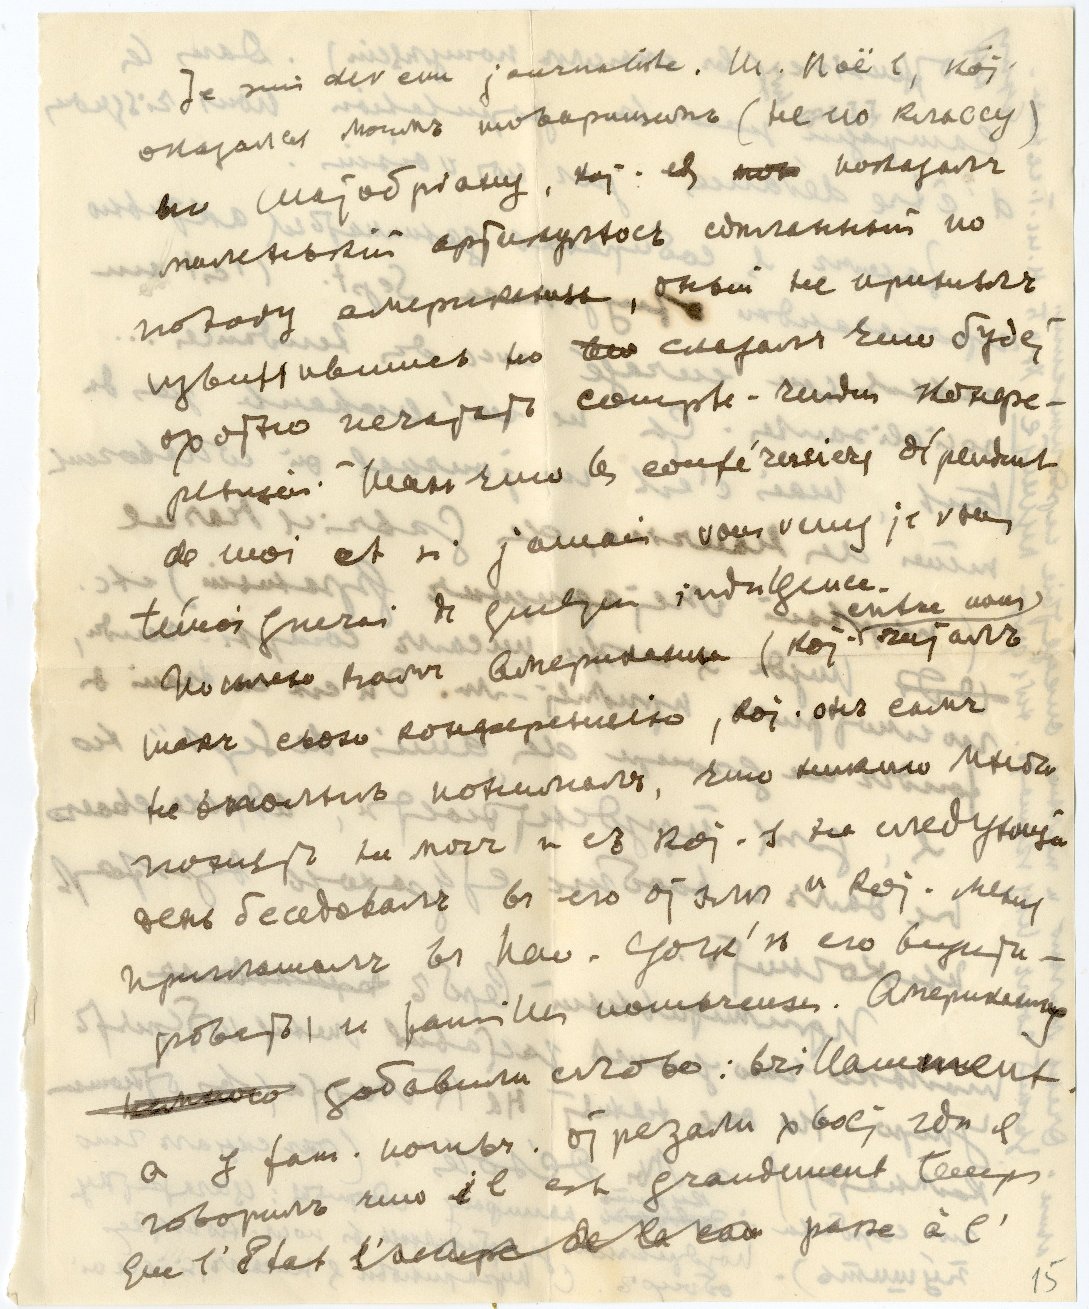 Je suis devenu journaliste. M. Noël, кој.
оказался моимъ товарищемъ (не по классу)
по Шатобріану, кој. я показалъ
маленькій артикулюсъ сдѣланный по
поводу американца, оный не принялъ
извинившись но сказалъ что будет
охотно печатать compte-rendus конфе-
ренцій. Такъ что les conférenciers dépendent
de moi et si jamais vous venez je vous
témoignerai de quelque indulgence.
entre nous
Помимо Американца (кој. читалъ
такъ свою конференцію, кој. онъ самъ
не понималъ, что никто ничего
понять не могъ и съ кој. я на следующій
день беседовалъ въ его отэлѣ и кој. меня
приглашалъ въ Нью-York'ѣ его визити-
ровать) и familles nombreuses. Американцу
добавили слово: brillamment,
а у fam. nombr. отрезали хвост гдѣ я
говорилъ что il est grandement temps
que l'État passe à l'
15